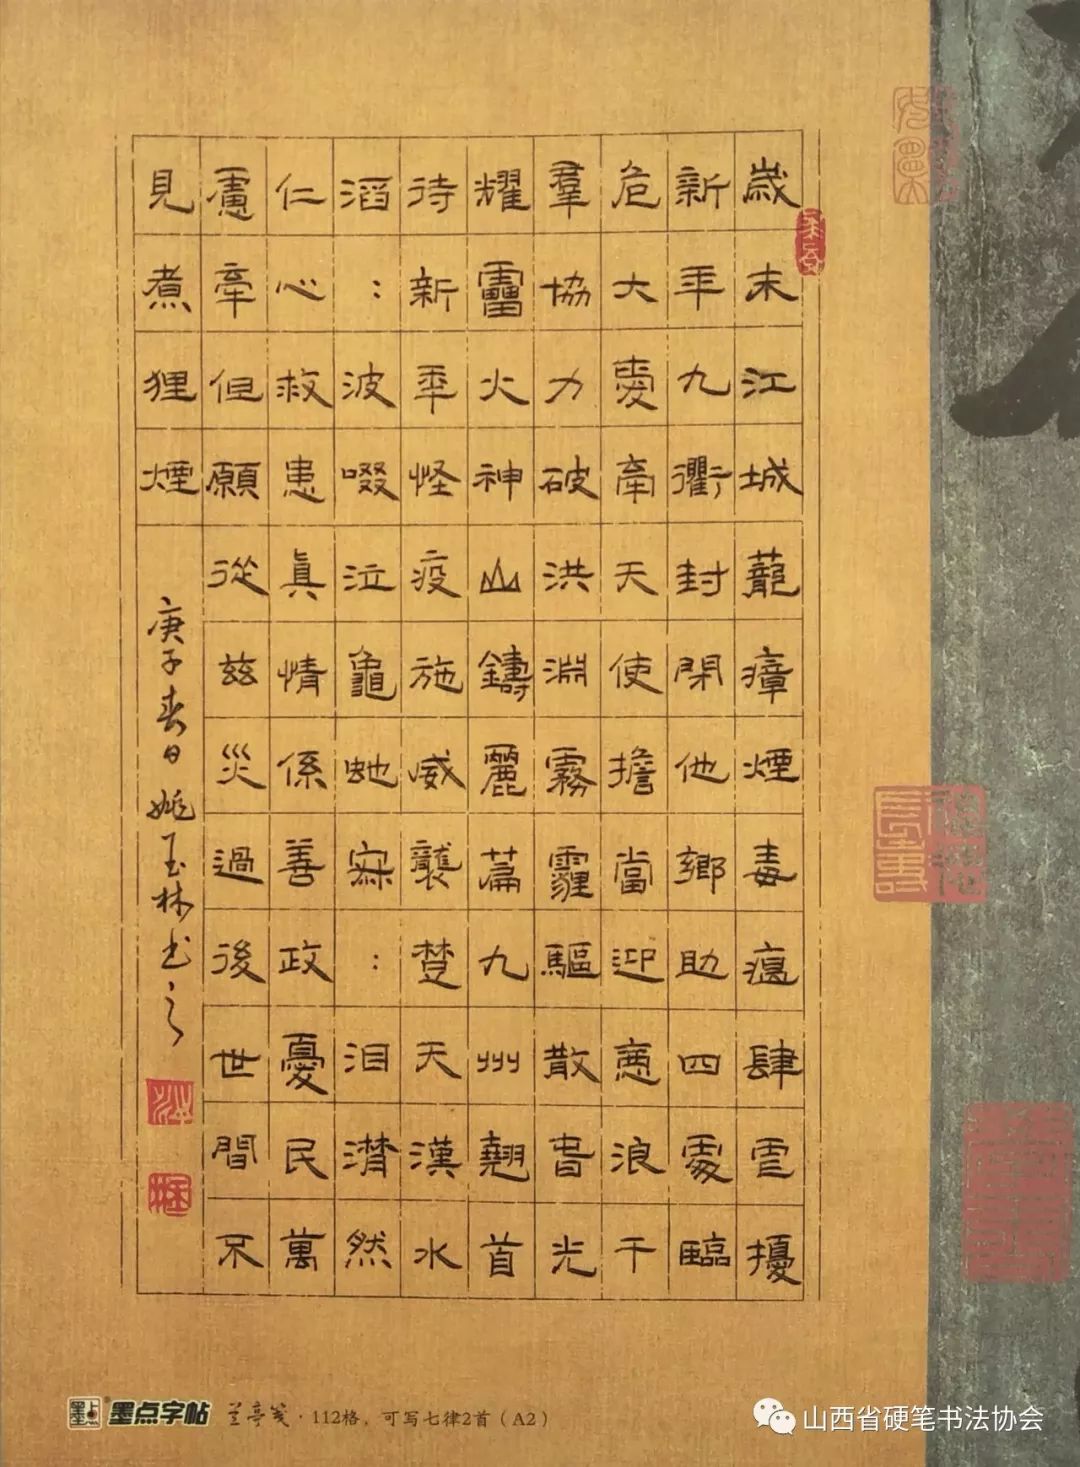 歲末江城蘢瘴煙毒瘟肆虐擾
新年九衢封閉他鄉助四處臨
危大愛牽天使擔當迎惡浪千
羣協力破洪淵霧霾驅散旾光
耀靁火神山鑄麗篇九州翹首
待新年怪疫施威襲楚天漢水
滔:波啜泣龜虵寐:泪潸然
仁心救患眞情係善政憂民萬
慮牽但願從茲災過後世間不
見煮狸煙
庚子春日姚玉林书之
墨点字帖 兰亭笺·112格，可写七律2首（A2）
山西省硬笔书法协会